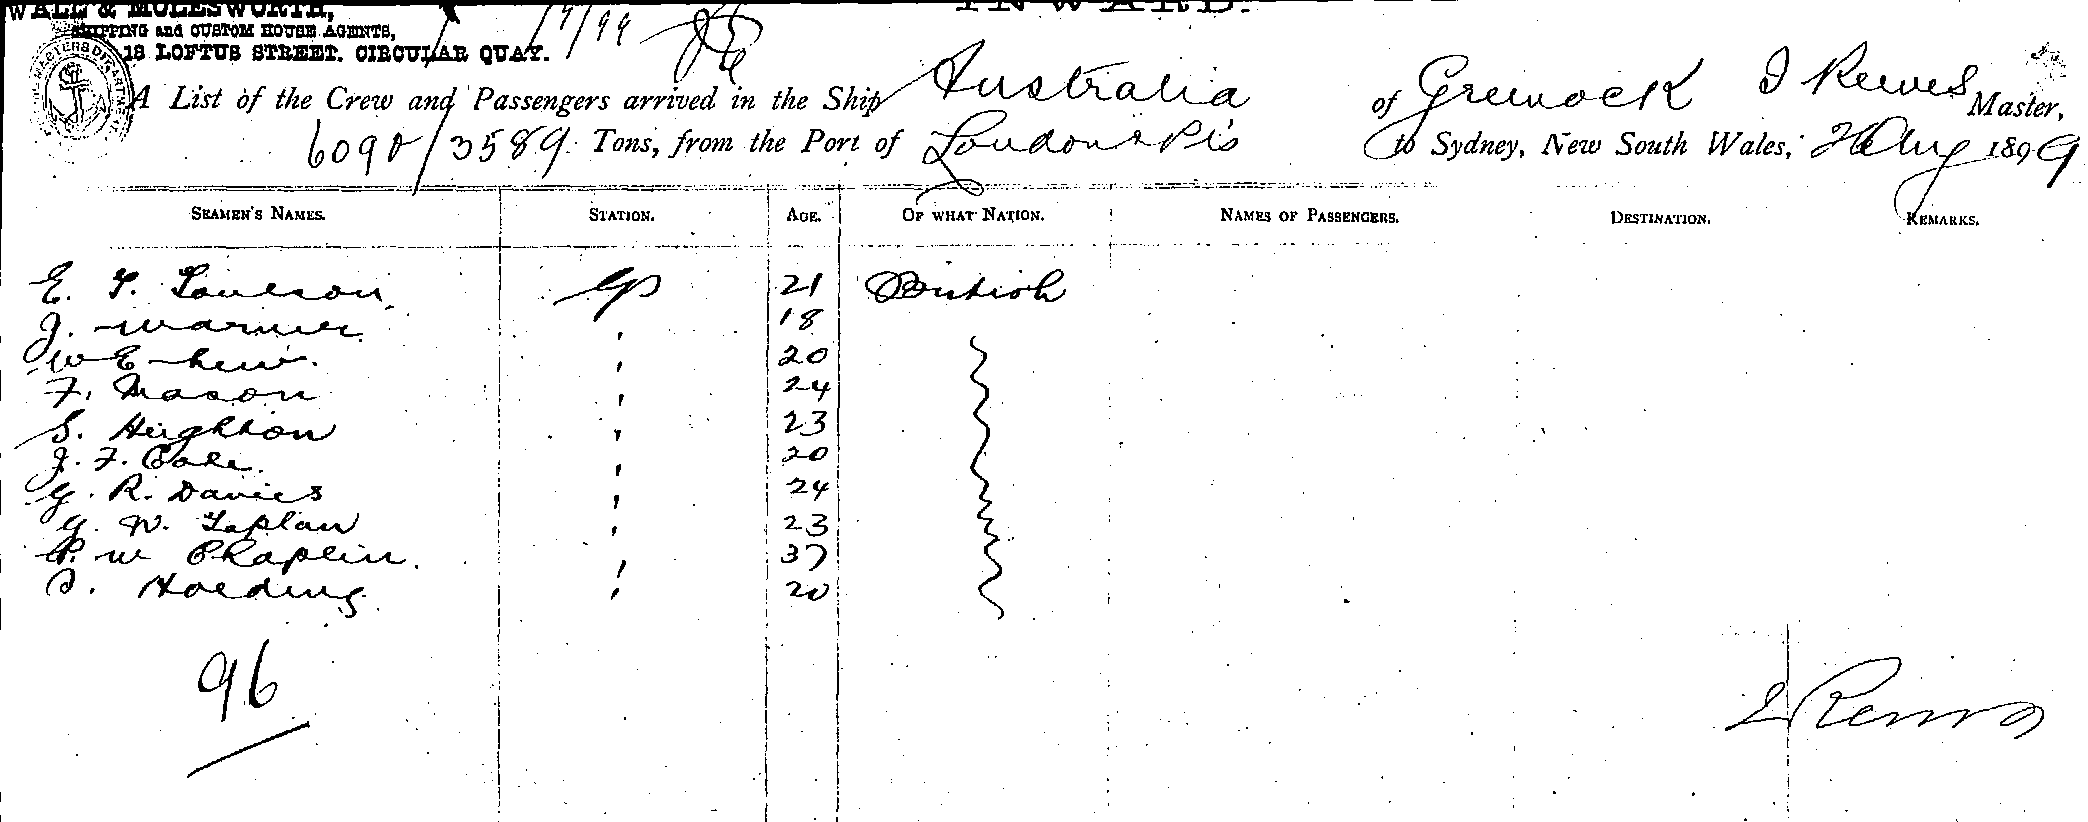 WALL & MOLESWORTH,
INWARD.
SHIPPING and CUSTOM HOUSE AGENTS,
18 LOFTUS STREET. CIRCULAR QUAY.
A List of the Crew and Passengers arrived in the Ship Australia of Greenock I Reeves Master,
6090/3589 Tons, from the Port of London & Pts to Sydney, New South Wales, Aug 1899
SEAMEN'S NAMES. STATION. AGE. OF WHAT NATION. NAMES OF PASSENGERS. DESTINATION. REMARKS.
E. 21 British
J. Warner 18
W E 20
F. Mason 24
S. Heighton 23
J. F. 20
G. R. Davies 24
G. W. 23
W Chaplin. 37
Holding 20
96